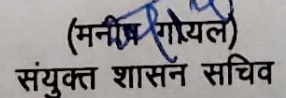 (मनीष गोयल)
संयुक्त शासन सचिव